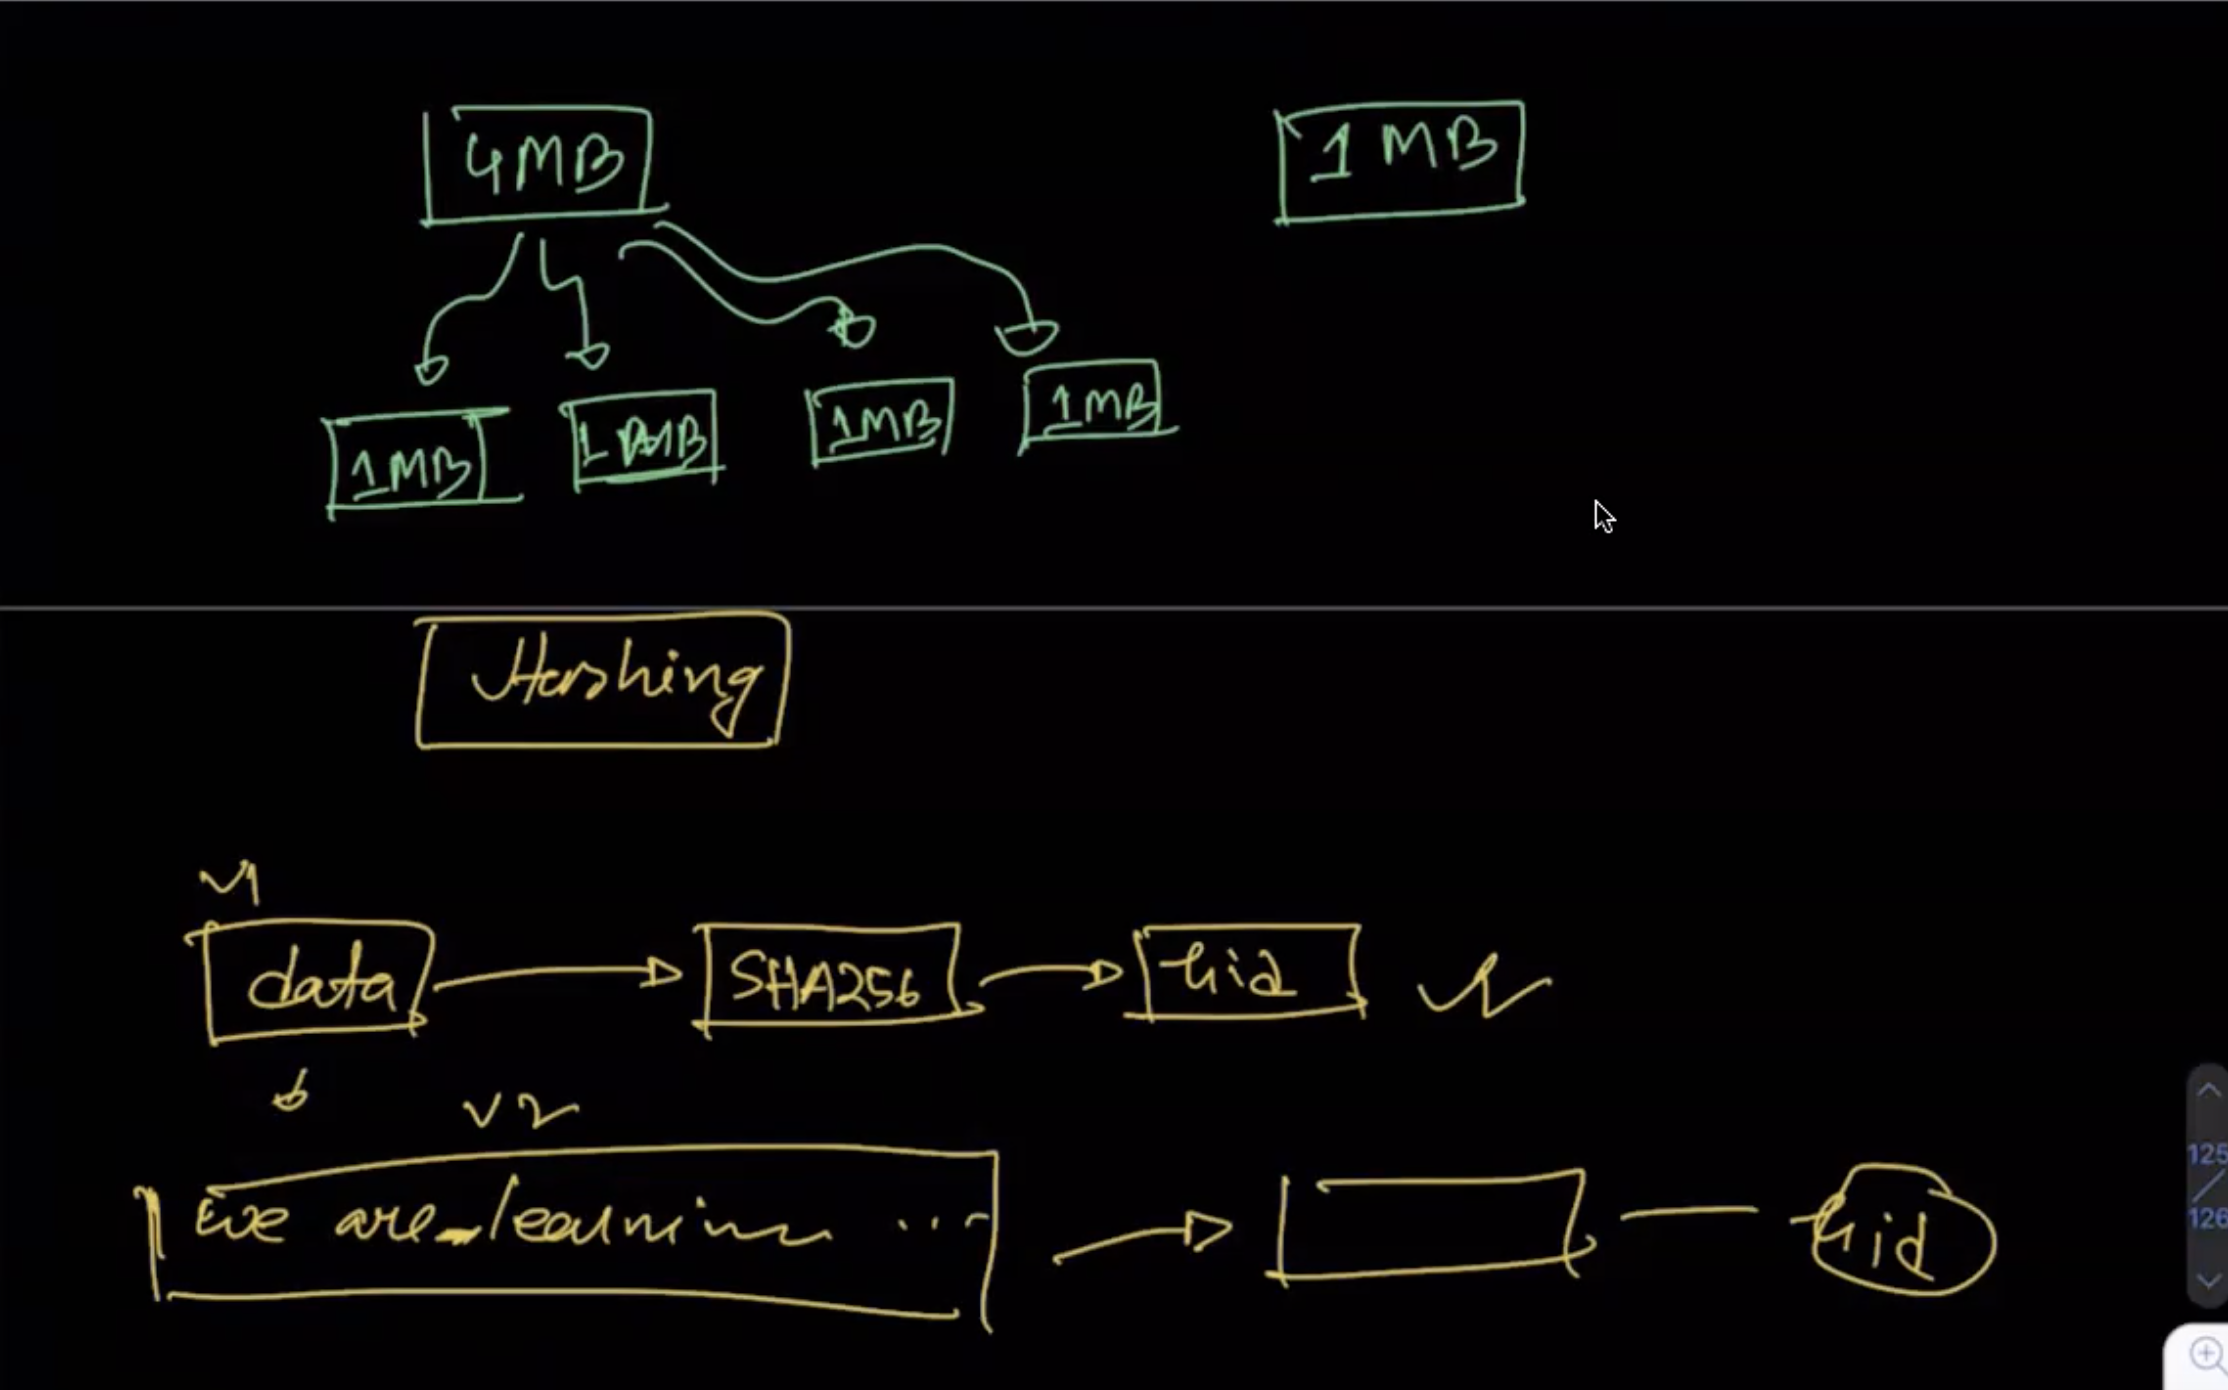 4MB
1 MB
1MB
1 MB
1MB
1MB
Hashing
V1
data
SHA256
hid
V2
we are learning ...
hid
125
126